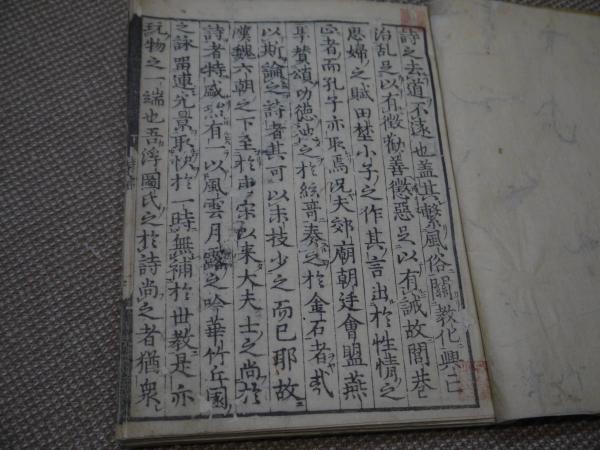 詩之去道不遠也盖其繫風俗關教化興亡
治乱是以有徴勧善懲惡是以有誡故閭巷
思婦之賦田埜小子之作其言出於性情之
正者而孔子亦取焉况夫郊廟朝廷會盟燕
享賛頌功德詠之於絃哥奏之於金石者哉
以斯論之詩者其可以末技少之而已耶故
漢魏六朝之下至於唐宋以来大夫士之尚於
詩者特盛
有一以風雲月露之吟華竹丘園
之詠留連光景取快於一時無補於世教是亦
玩物之一端也吾浮圖氏之於詩尚之者猶衆